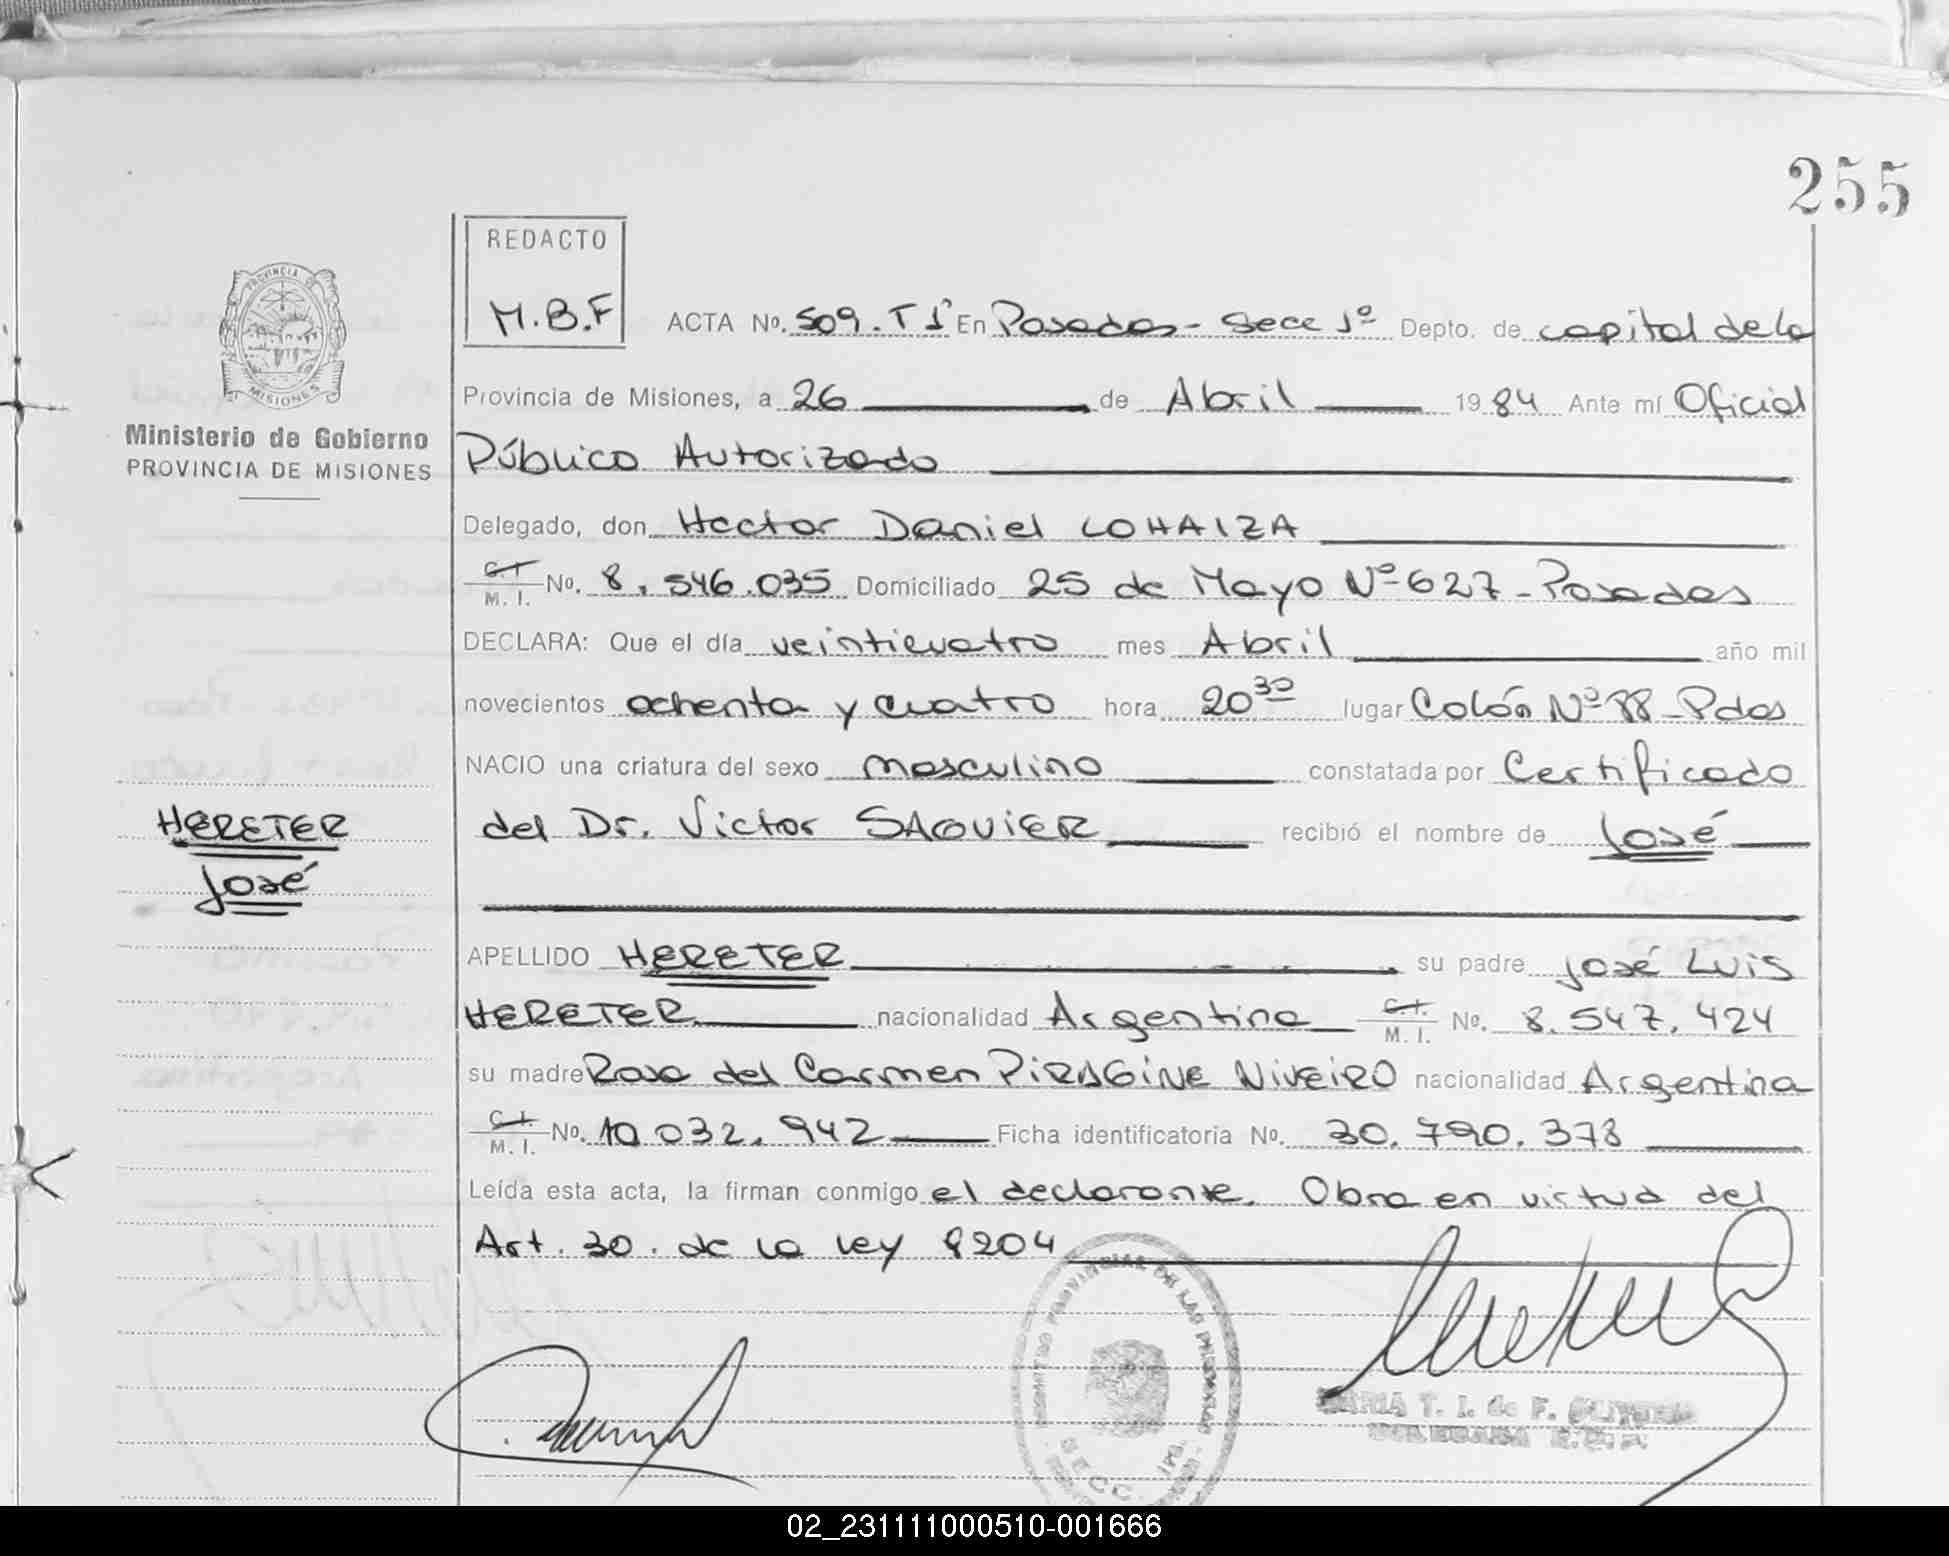 255
REDACTO
M.B.F
ACTA No. 509. T 1º En Posadas - Secc 1º Depto. de capital de la
PROVINCIA DE
MISIONES
Ministerio de Gobierno
PROVINCIA DE MISIONES
Provincia de Misiones, a 26 de Abril 1984 Ante mí Oficial
Público Autorizado
Delegado, don Hector Daniel LOHAIZA
C.I. M. I. No. 8.546.035 Domiciliado 25 de Mayo Nº 627 - Posadas
DECLARA: Que el día veinticuatro mes Abril año mil
novecientos ochenta y cuatro hora 20 30 lugar Colón Nº 88 - Pdas
NACIO una criatura del sexo masculino constatada por Certificado
HERETER
José
del Dr. Victor SAGUIER recibió el nombre de José
APELLIDO HERETER su padre José Luis
HERETER nacionalidad Argentina C.I. M. I. No. 8.547.424
su madre Rosa del Carmen PIRAGINE NIVEIRO nacionalidad Argentina
C.I. M. I. No. 10.032.942 Ficha identificatoria No. 30.790.378
Leída esta acta, la firman conmigo el declarante. Obra en virtud del
Art. 30. de la ley 8204
PROVINCIAL DE LAS PERSONAS
SECC.
MARIA T. I. de F.
DELEGADA
02_231111000510-001666